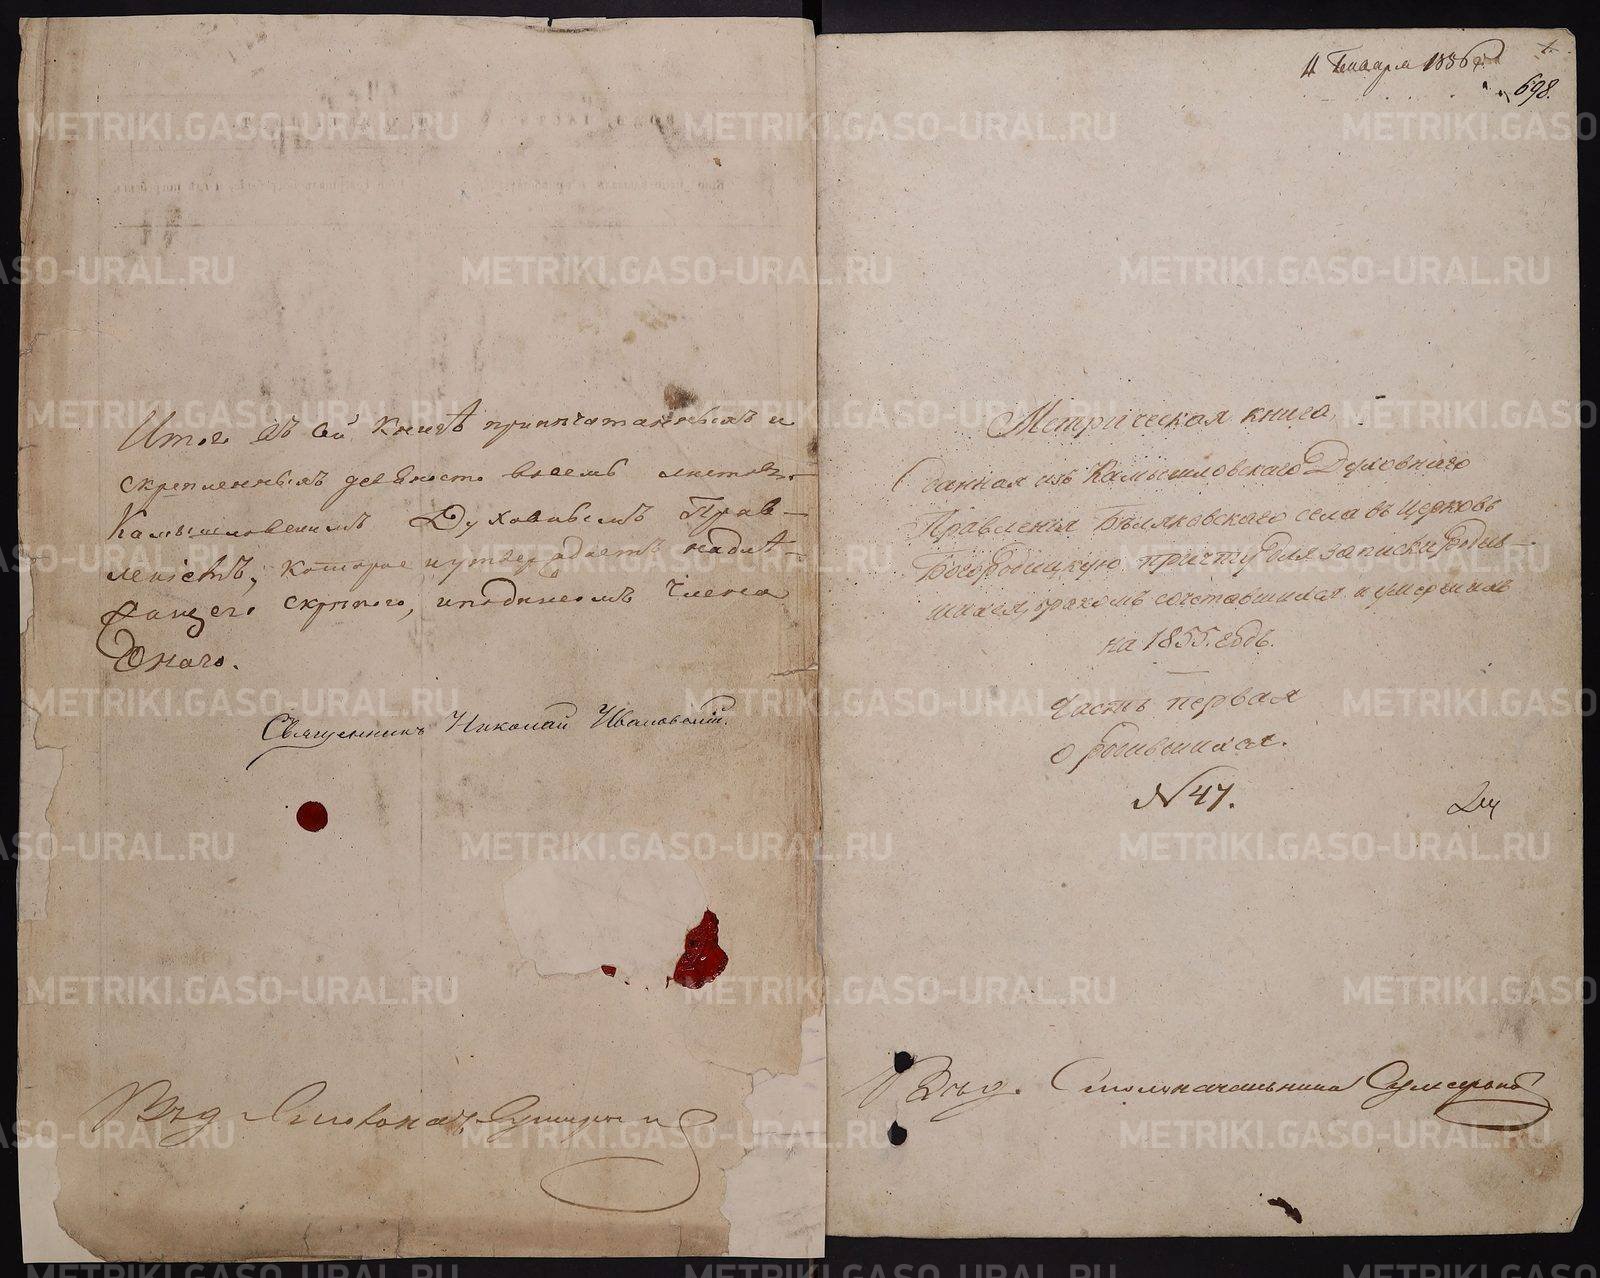 Итого въ сей книгѣ припечатанныхъ и
скрепленныхъ девяносто восемь листовъ
Камышловскимъ Духовнымъ Прав-
леніемъ, которое и утверждаетъ надлѣ-
жащего скрепою, и подписомъ Члена
Онаго.
Священникъ Николай
Вмѣд.
4 Января 1856 г.
698.
Метрическая книга
Данная изъ Камышловскаго Духовнаго
Правленія Бѣляковскаго села въ церковь
Богородицкую причту для записки родив-
шихся, бракомъ сочетавшихся и умершихъ
на 1855. годъ.
Часть первая
о родившихся.
№ 47.
Столоначальника
METRIKI.GASO-URAL.RU